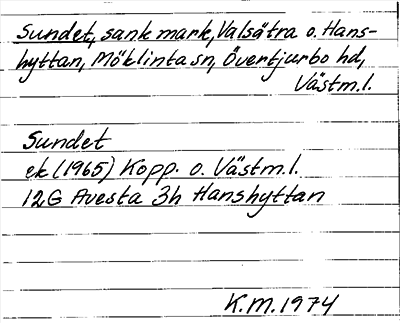 Sundet, sank mark, Valsätra o. Hans-
hyttan, Möklinta sn, Övertjurbo hd,
Västm.l.
Sundet
ek (1965) Kopp. o. Västm.l.
12G Avesta 3h Hanshyttan
K.M. 1974